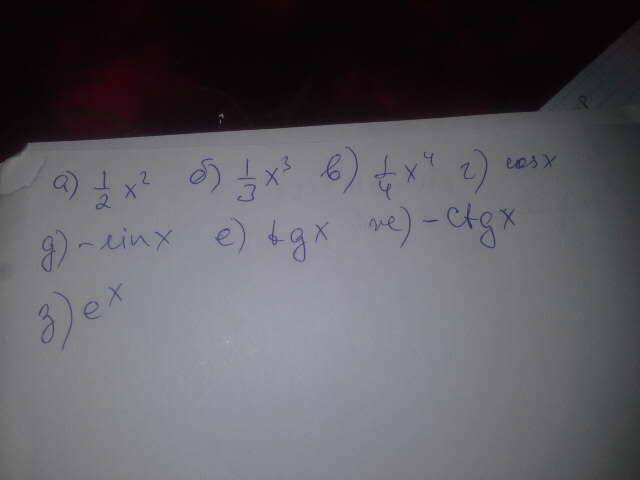 а) 1/2 x² б) 1/3 x³ в) 1/4 x⁴ г) cos x
д) -sin x е) tg x ж) -ctg x
з) eˣ